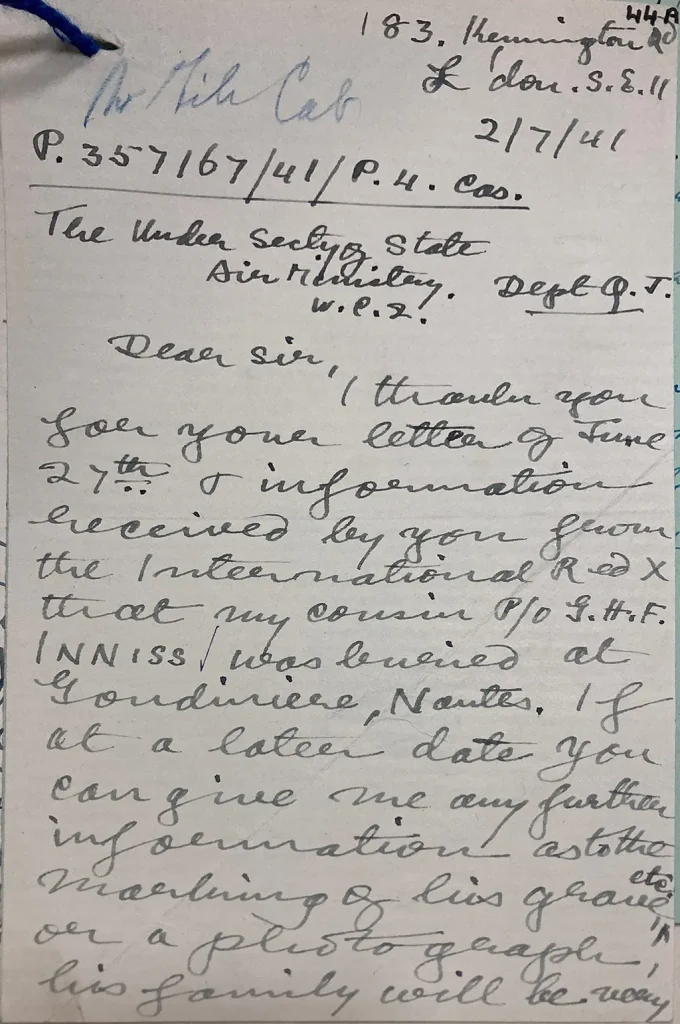 44A
183. Kennington Rd
L don. S.E.11
2/7/41
Cab
P. 357167/41/P.4. Cas.
The Under Secty of State
Air Ministry. Dept Q.J.
W.C.2.
Dear Sir,
I thank you
for your letter of June
27th & information
received by you from
the International Red X
that my cousin P/O G.H.F.
INNISS was buried at
Gondiniere, Nantes. If
at a later date you
can give me any further
information as to the
marking of his grave etc.
or a photograph,
his family will be very